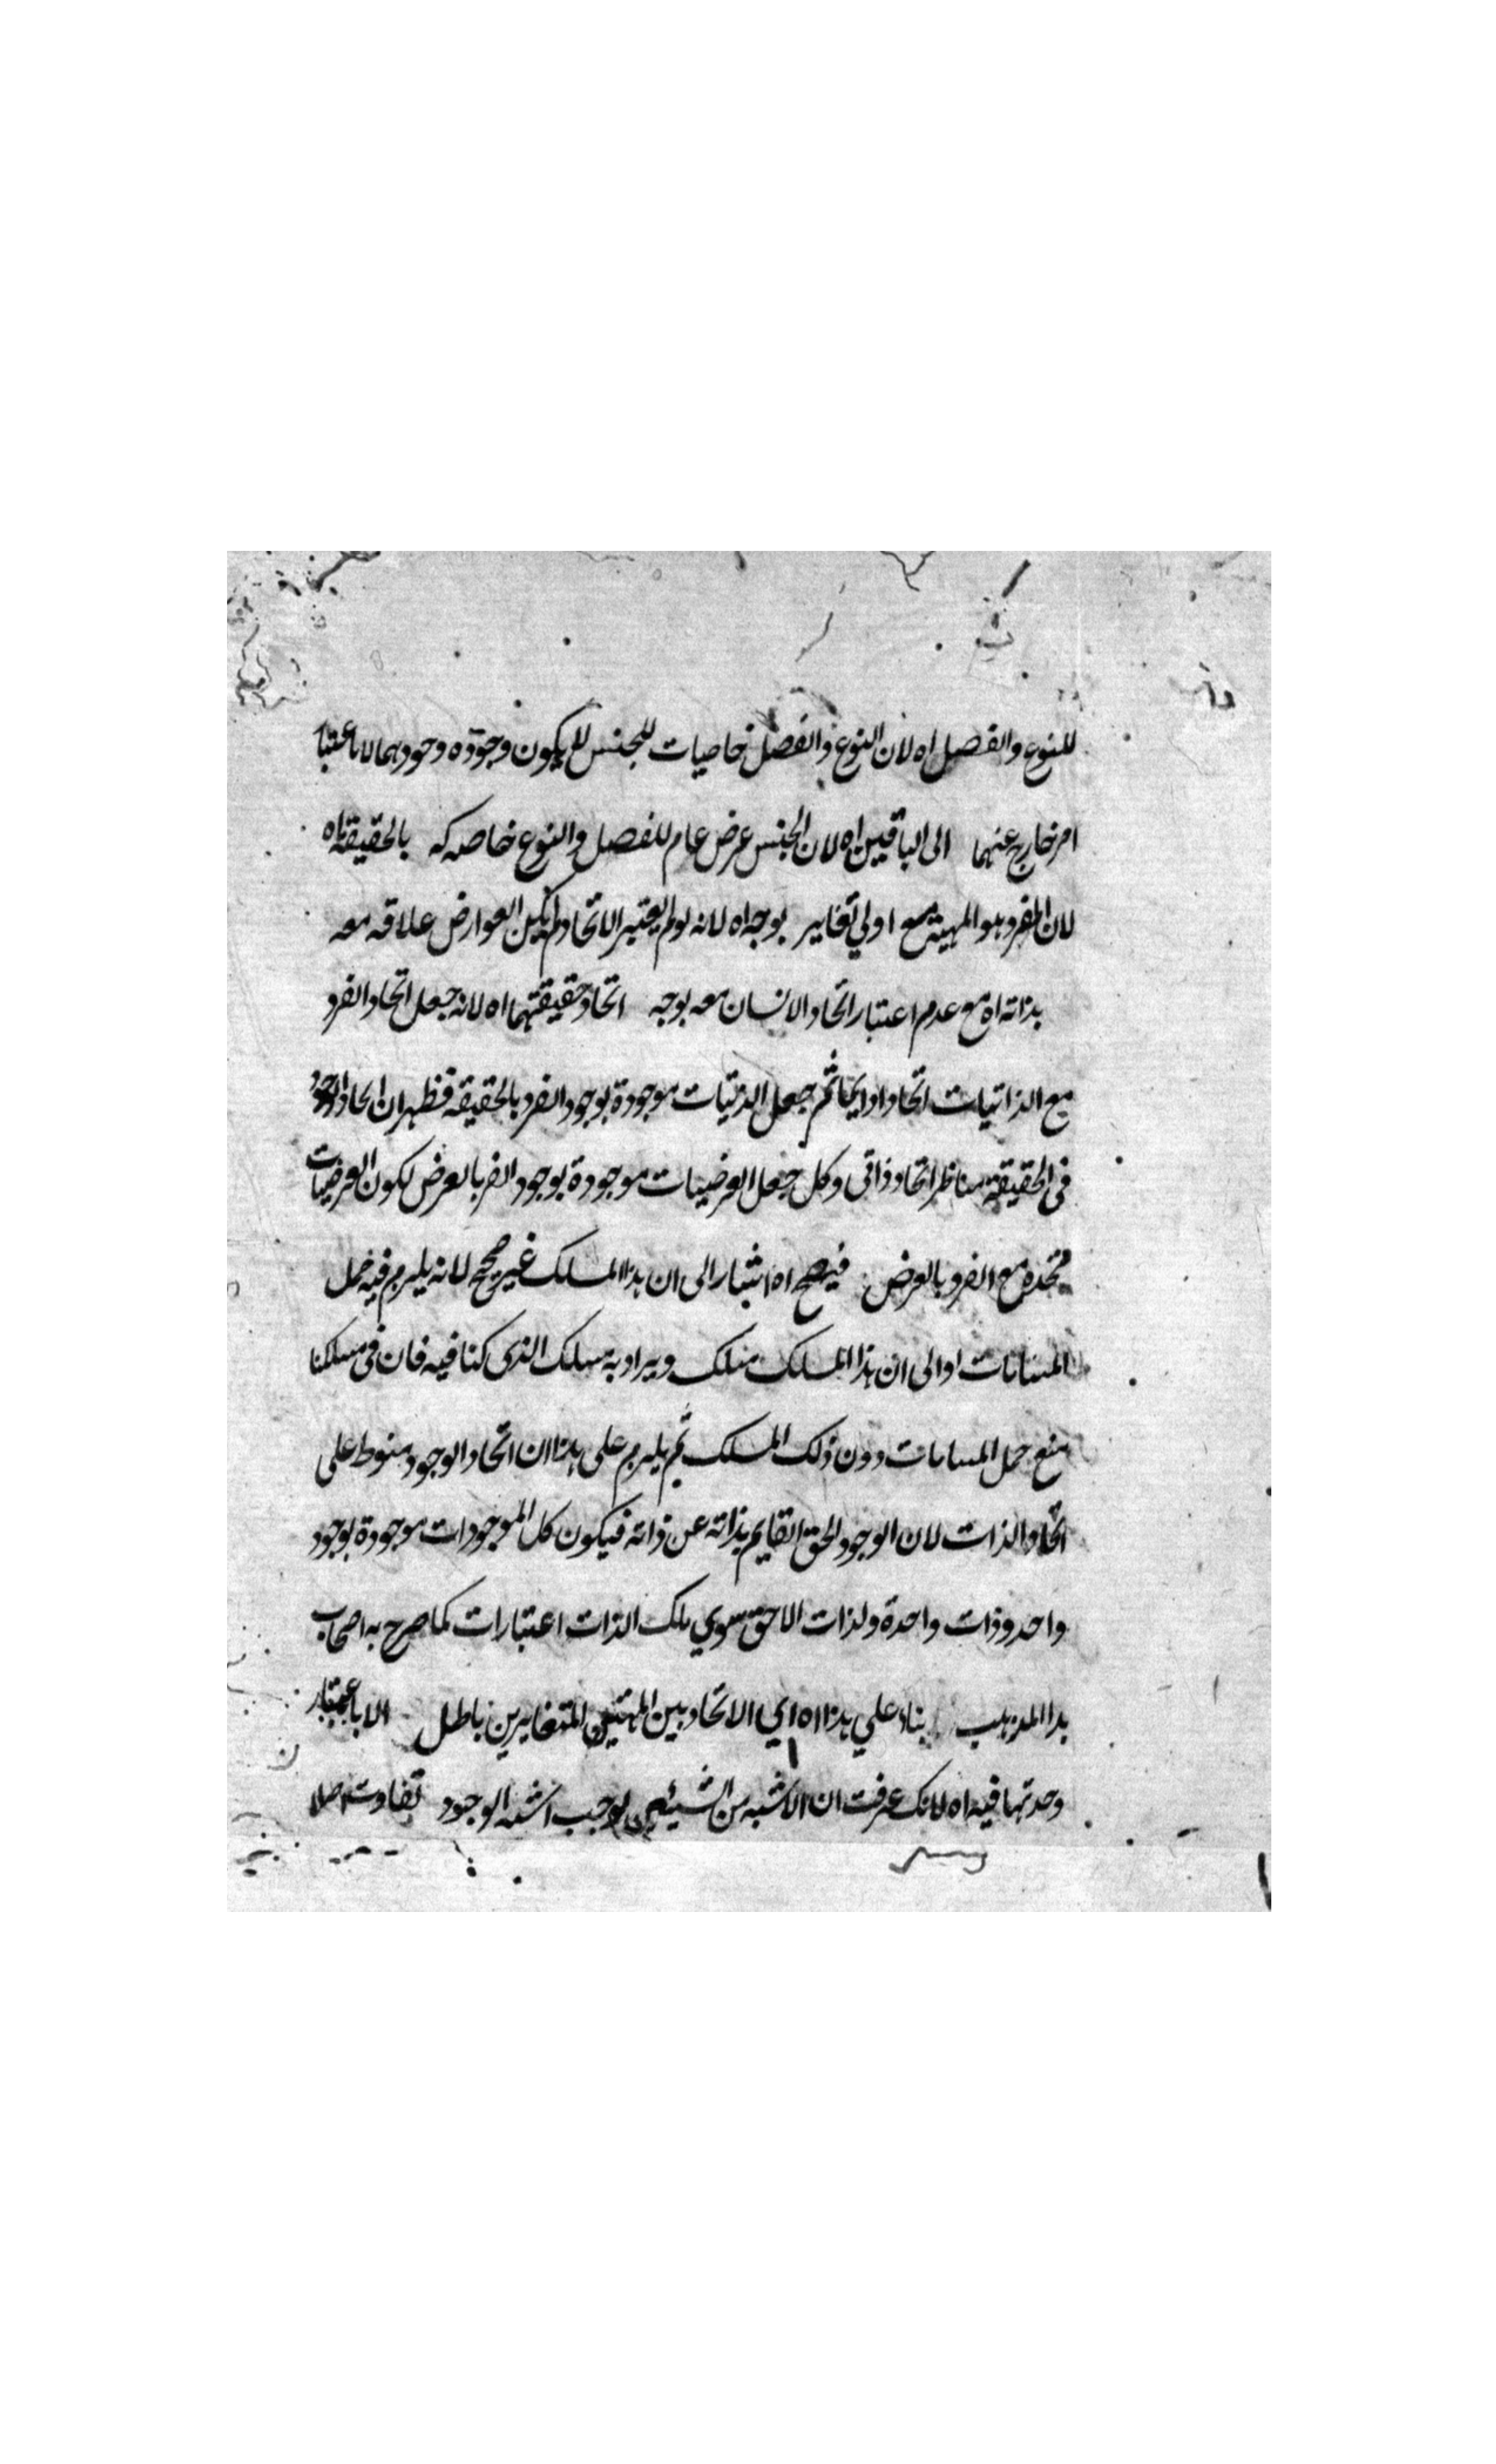 للنوع والفصل اه لان النوع والفصل خاصيات للجنس لا يكون وجوده وجودهما لا باعتبا
امر خارج عنهما الى الباقيين اه لان الجنس عرض عام للفصل والنوع خاصه له بالحقيقة اه
لان الفرد هو المهية مع اولي تغاير بوجه اه لانه لو لم يعتبر الاتحاد لم يكن العوارض علاقه معه
بذاته اه مع عدم اعتبار اتحاد الانسان معه بوجه اتحاد حقيقتهما اه لانه جعل اتحاد الفرد
مع الذاتيات اتحادا ثم جعل الذاتيات موجودة بوجود الفرد بالحقيقه فظهر ان اتحاد الوجود
فى الحقيقة مناظر اتحاد ذاتى وكل جعل العرضيات موجودة بوجود الفر بالعرض لكون العرضيات
متحده مع الفرد بالعرض فيصح اه اشار الى ان هذا المسلك غير صحيح لانه يلزم فيه حمل
المباينات او الى ان هذا المسلك ويراد به مسلك الذى كنا فيه فان فى مسلكنا
منع حمل المباينات دون ذلك المسلك ثم يلزم على هذا ان اتحاد الوجود منوط على
اتحاد الذات لان الوجود الحق القايم بذاته عن ذاته فيكون كل الموجودات موجودة بوجود
واحد وذات واحدة ولذات الاحق سوي تلك الذات اعتبارات كما صرح به اصحاب
هذا المذهب بناء علي هذا اه اي الاتحاد بين المهيتين المتغايرين باطل الا باعتبار
وحدتهما فيه اه لانك عرفت ان من الشيئين يوجب الوجود تفاوت اصلا